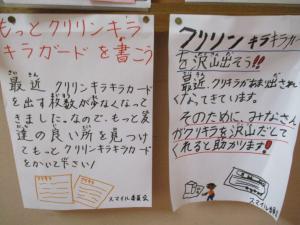 もっとクリリンキラ
キラカードを書こう
最近 クリリンキラキラカード
を出す枚数が少なくなって
きました。なので、もっと友
達の良い所を見つけ
てもっとクリリンキラキラカード
をかいて下さい!
スマイル委員会
クリリンキラキラカー
ち沢山出そう!!
最近、クリキラがあまり出されな
くなってきています。
そのために、みなさん
がクリキラを沢山だして
くれると助かります!
スマイル委員会